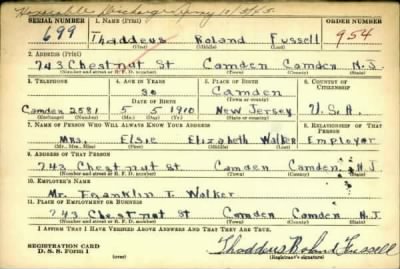 Honorable Discharge
SERIAL NUMBER 1. NAME (Print) ORDER NUMBER
699 Thaddeus Roland Fussell 954
(First) (Middle) (Last)
2. ADDRESS (Print)
743 Chestnut St Camden Camden N.J.
(Number and street or R. F. D. number) (Town) (County) (State)
3. TELEPHONE 4. AGE IN YEARS 5. PLACE OF BIRTH 6. COUNTRY OF CITIZENSHIP
30 Camden
DATE OF BIRTH (Town or county)
Camden 2581 5 5 1910 New Jersey U.S.A.
(Exchange) (Number) (Mo.) (Day) (Yr.) (State or country)
7. NAME OF PERSON WHO WILL ALWAYS KNOW YOUR ADDRESS 8. RELATIONSHIP OF THAT PERSON
Mrs. Elsie Elizabeth Walker Employer
(Mr., Mrs., Miss) (First) (Middle) (Last)
9. ADDRESS OF THAT PERSON
743 Chestnut St Camden Camden N.J.
(Number and street or R. F. D. number) (Town) (County) (State)
10. EMPLOYER'S NAME
Mr. Franklin T. Walker
11. PLACE OF EMPLOYMENT OR BUSINESS
743 Chestnut St Camden Camden N.J.
(Number and street or R. F. D. number) (Town) (County) (State)
I AFFIRM THAT I HAVE VERIFIED ABOVE ANSWERS AND THAT THEY ARE TRUE.
REGISTRATION CARD
D. S. S. FORM 1 (over) Thaddeus Roland Fussell
(Registrant's signature)